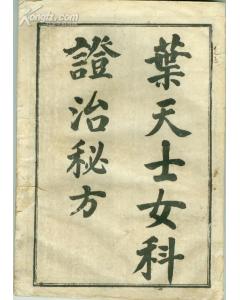 葉天士女科
證治秘方
Kongfz.com